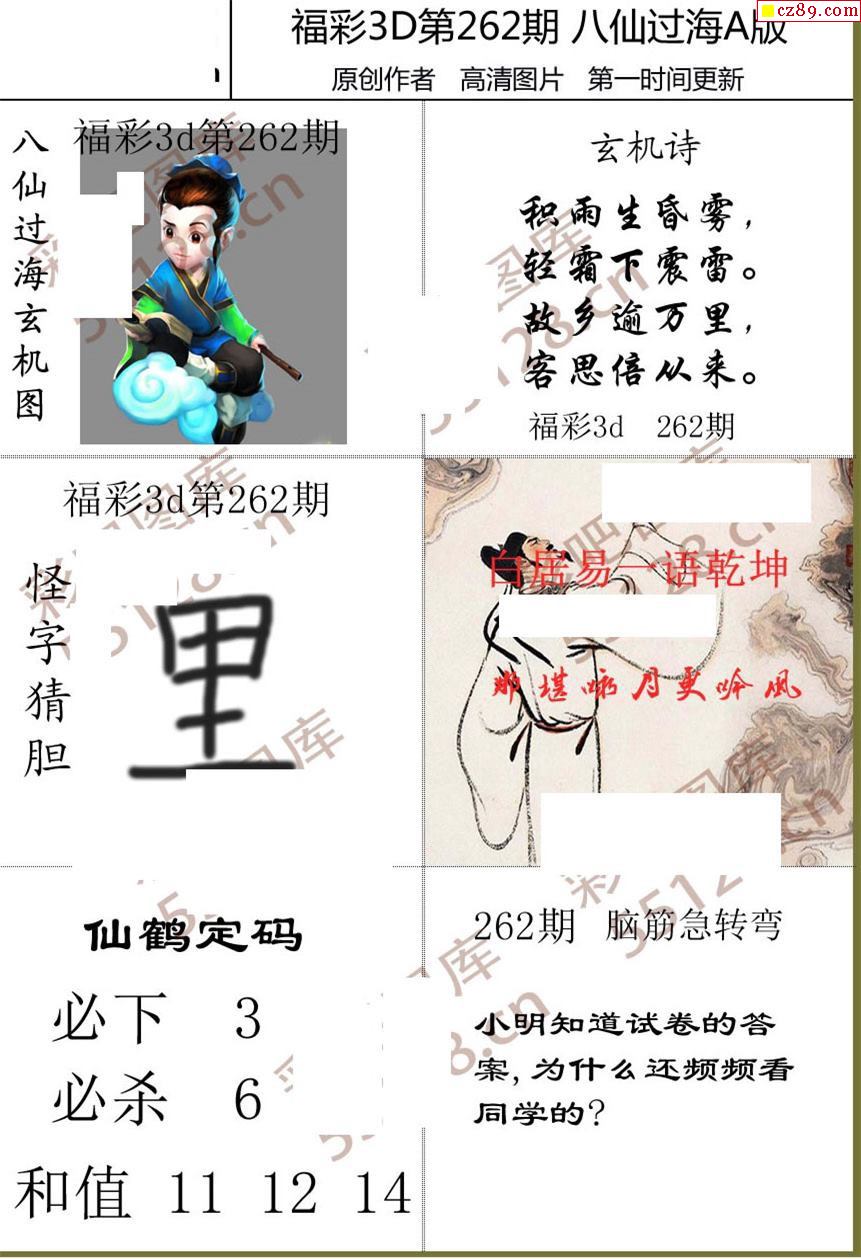 cz89.com
福彩3D第262期 八仙过海A版
原创作者 高清图片 第一时间更新
八仙过海玄机图
福彩3d第262期
玄机诗
积雨生昏雾，
轻霜下震雷。
故乡逾万里，
客思倍从来。
福彩3d 262期
福彩3d第262期
怪字猜胆
白居易一语乾坤
那堪咏月更吟风
仙鹤定码
必下 3
必杀 6
和值 11 12 14
262期 脑筋急转弯
小明知道试卷的答
案，为什么还频频看
同学的？